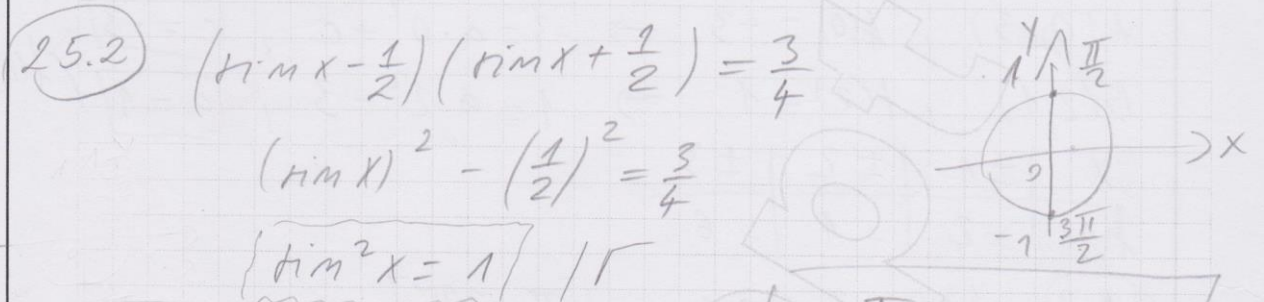 25.2 (sin x - 1/2)(sin x + 1/2) = 3/4
(sin x)² - (1/2)² = 3/4
sin²x = 1 /√
y
1 π/2
x
0
-1 3π/2